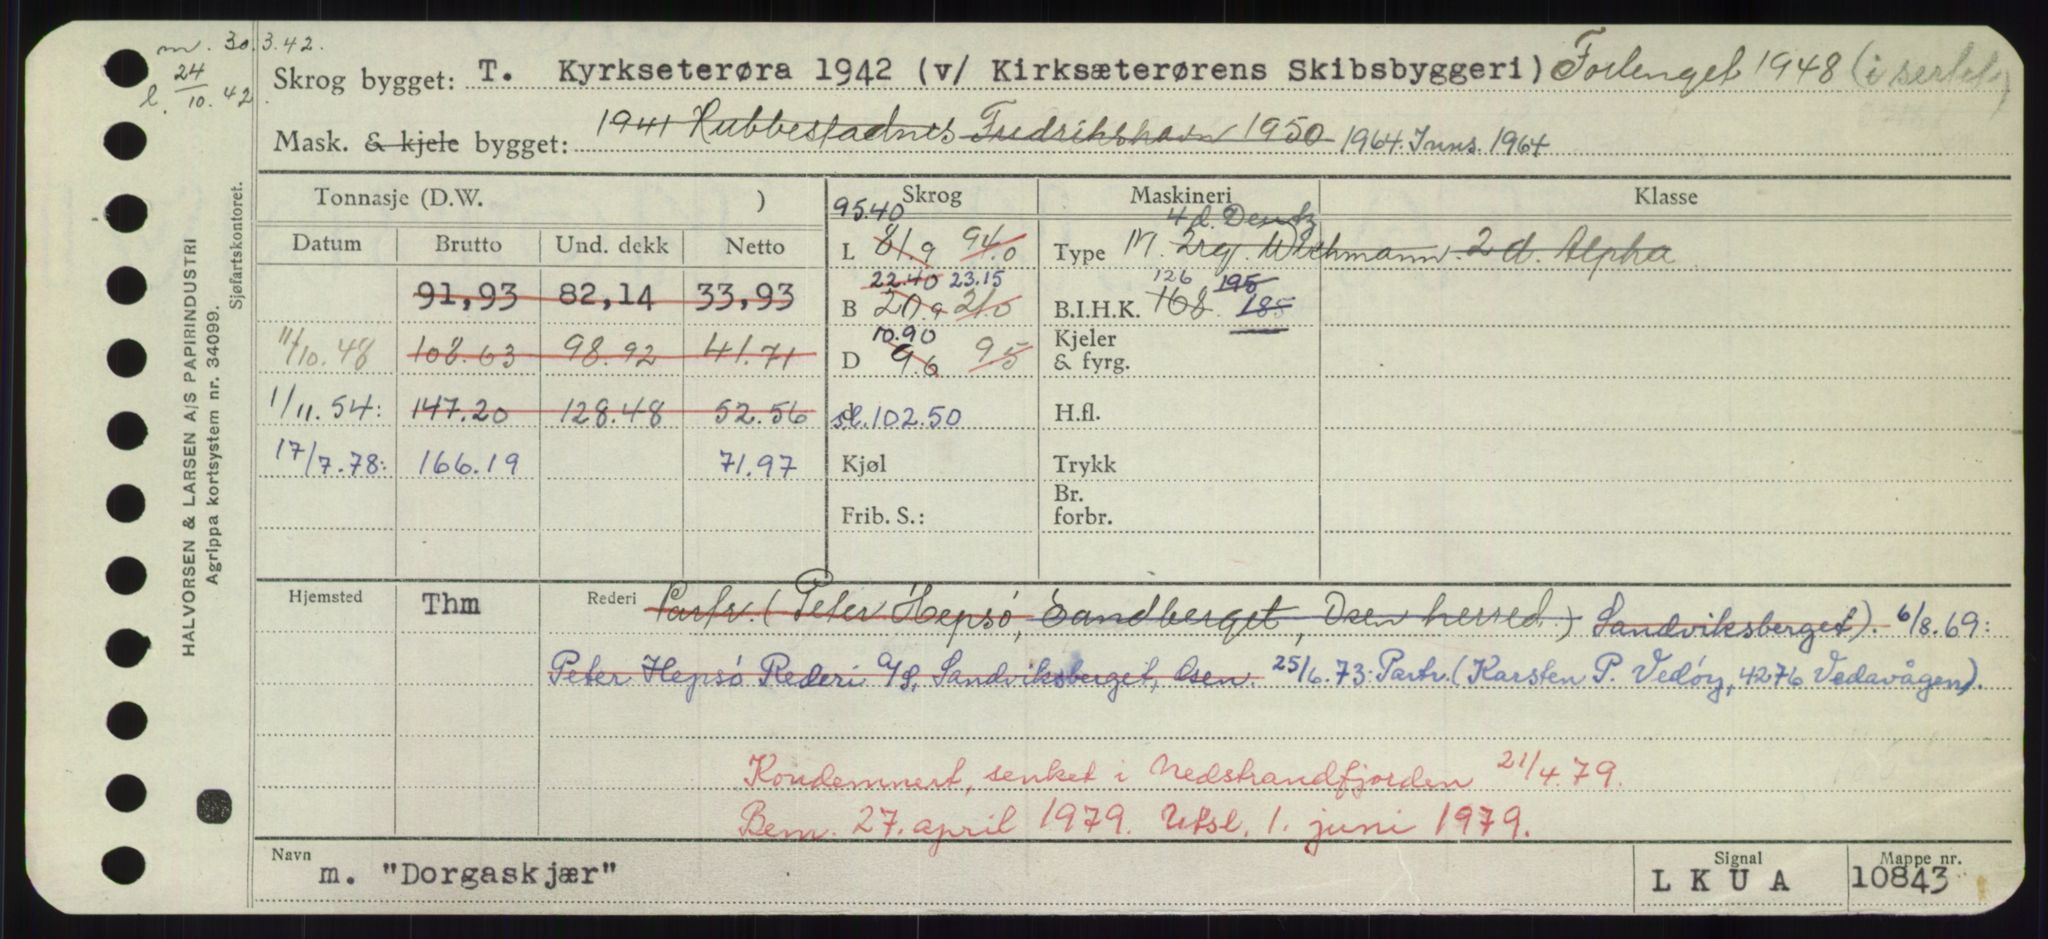 m. 30.3.42.
l. 24/10.42
Skrog bygget: T. Kyrkseterøra 1942 (v/ Kirksæterørens Skibsbyggeri) Forlenget 1948 (i
Mask. & kjele bygget: 1941 Rubbestadnes Fredrikshavn 1950 1964. Inns. 1964
Tonnasje (D.W. ) Skrog Maskineri Klasse
Datum Brutto Und. dekk Netto
95.40
L 81.9 94.0
4 d. Deutz
Type M. 2 Wichmann. 2 d. Alpha
91,93 82,14 33,93
22.40 23.15
B 20.9 21.0
126 195
B.I.H.K. 168. 185
11/10.48 108.63 98.92 41.71
10.90
D 9.6 9.5
Kjeler
& fyrg.
1/11.54: 147.20 128.48 52.56
d st.l. 102.50
H.fl.
17/7.78: 166.19 71.97
Kjøl
Trykk
Frib. S.:
Br.
forbr.
Hjemsted Thm Rederi Partr. (Peter Hepsø, Sandberget, Osen herred.) Sandviksberget). 6/8.69:
Peter Hepsø Rederi A/S, Sandviksberget, Osen. 25/6.73: Partr. (Karsten P. Vedøy, 4276 Vedavågen).
Kondemnert, senket i Nedstrandfjorden 21/4.79.
Bem. 27. april 1979. Utsl. 1. juni 1979.
Navn m. "Dorgaskjær"
Signal L K U A
Mappe nr. 10843
HALVORSEN & LARSEN A/S PAPIRINDUSTRI
Agrippa kortsystem nr. 34099.
Sjøfartskontoret.